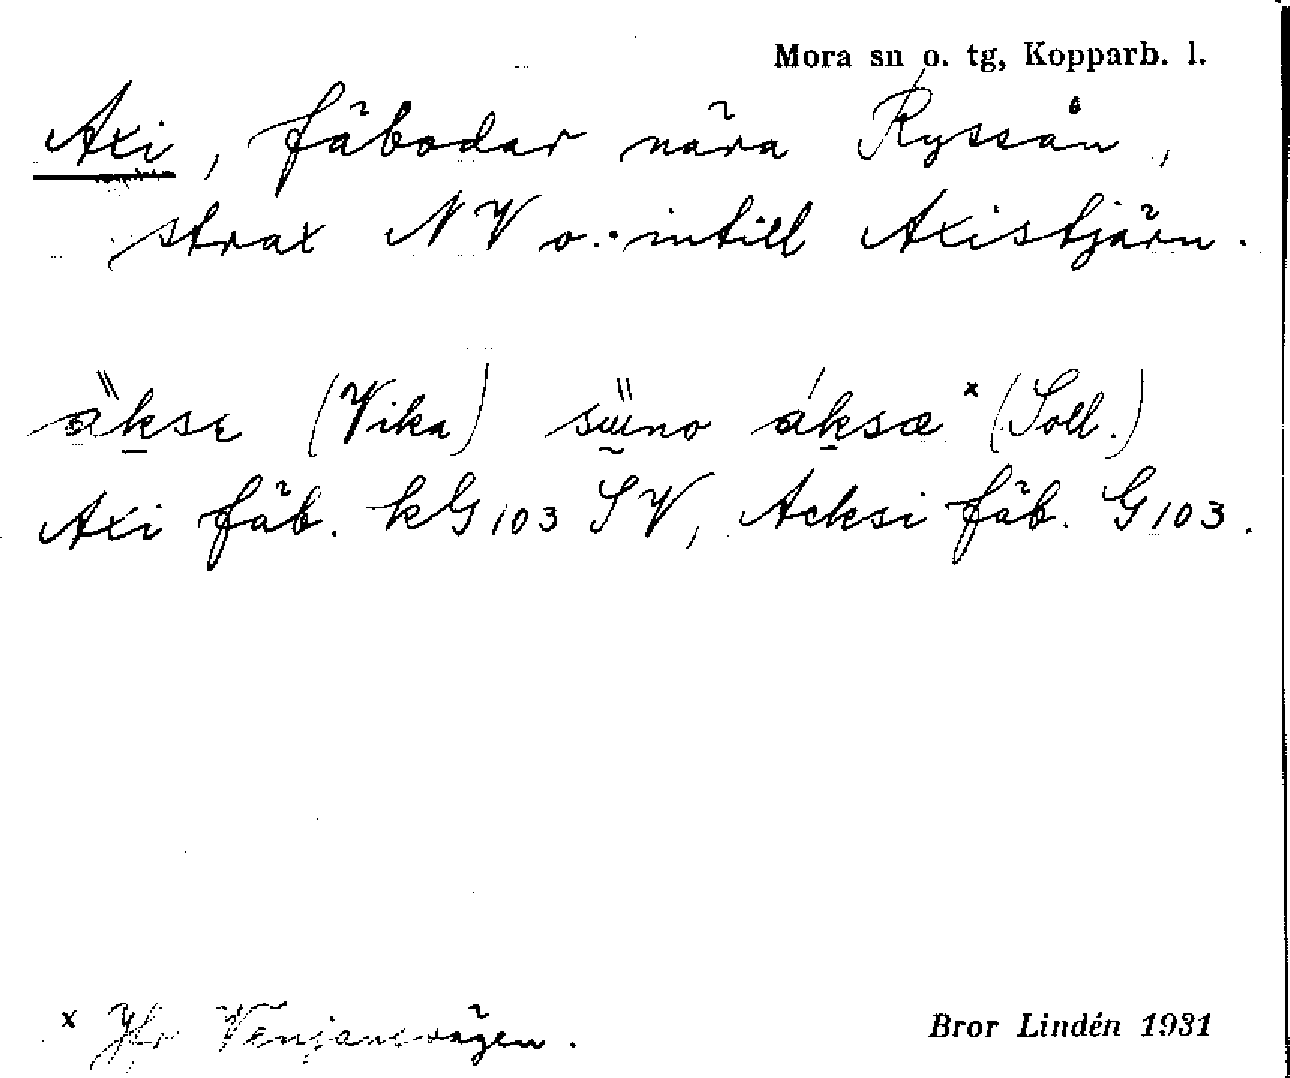 Mora sn o. tg, Kopparb. l.
Axi, fäbodar nära Ryssån,
strax NV o. intill Axistjärn.
(Vika) áksæ x (Soll.)
Axi fäb. kG103 SV, Acksi fäb. G103.
x Jfr Venjansvägen.
Bror Lindén 1931